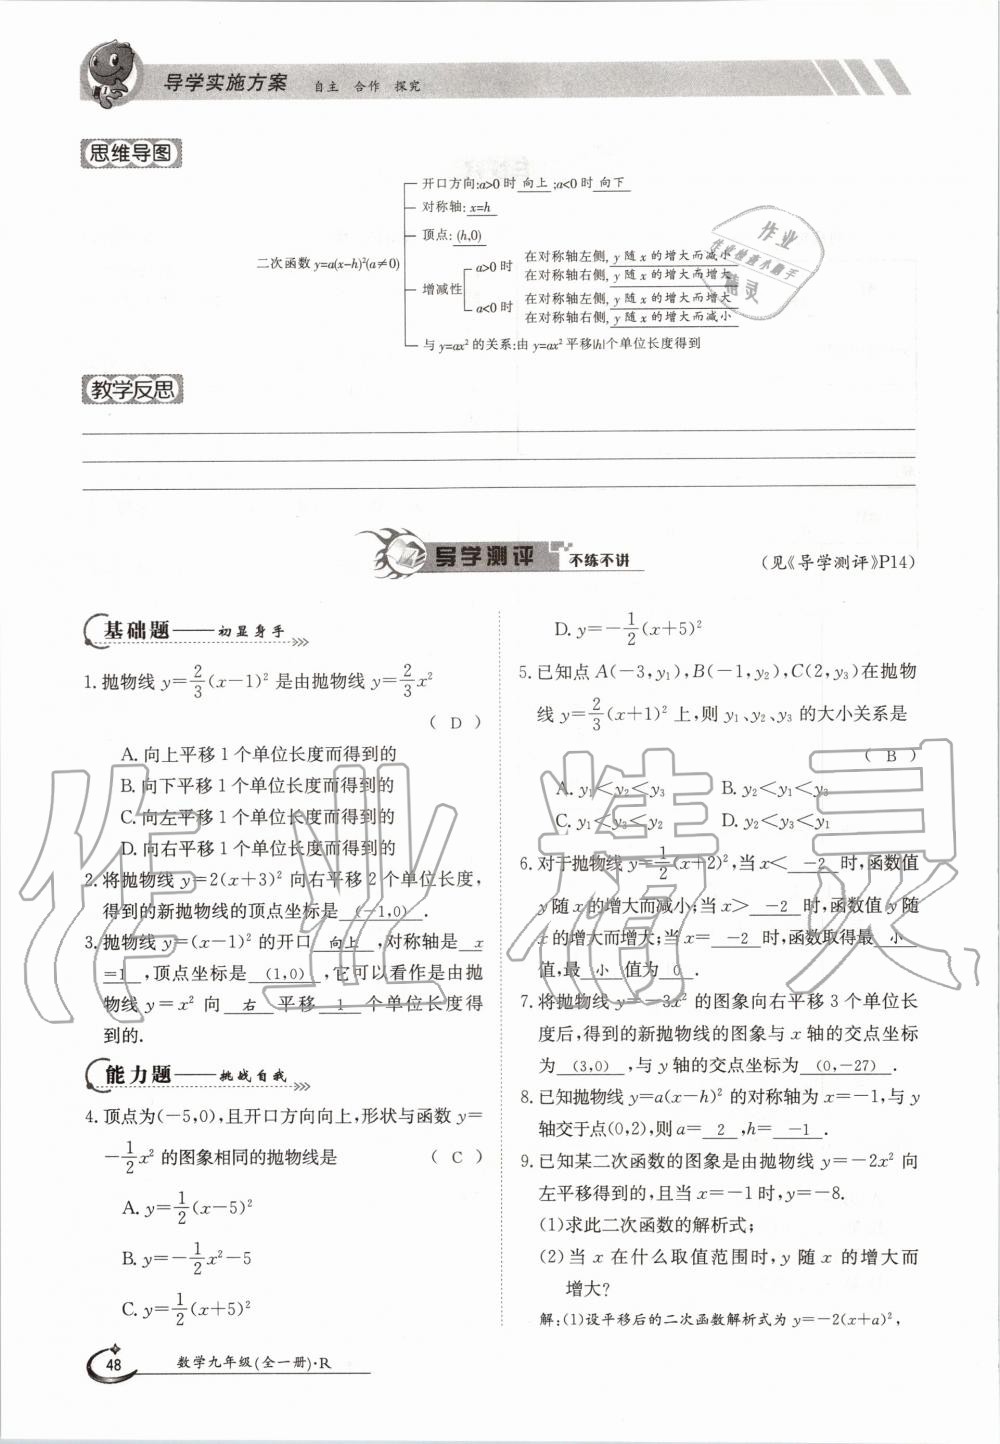 导学实施方案 自主 合作 探究
思维导图
二次函数y=a(x-h)²(a≠0)
开口方向:a>0时 向上 ;a<0时 向下
对称轴: x=h
顶点: (h,0)
增减性
a>0时
在对称轴左侧, y随x的增大而减小
在对称轴右侧, y随x的增大而增大
a<0时
在对称轴左侧, y随x的增大而增大
在对称轴右侧, y随x的增大而减小
与y=ax²的关系:由y=ax²平移|h|个单位长度得到
教学反思
导学测评 不练不讲 (见《导学测评》P14)
基础题——初显身手
1.抛物线 y=2/3(x-1)² 是由抛物线 y=2/3x²
( D )
A.向上平移1个单位长度而得到的
B.向下平移1个单位长度而得到的
C.向左平移1个单位长度而得到的
D.向右平移1个单位长度而得到的
2.将抛物线 y=2(x+3)² 向右平移2个单位长度,
得到的新抛物线的顶点坐标是 (-1,0) .
3.抛物线 y=(x-1)² 的开口 向上 ,对称轴是 x
=1 ,顶点坐标是 (1,0) ,它可以看作是由抛
物线 y=x² 向 右 平移 1 个单位长度得
到的.
能力题——挑战自我
4.顶点为(-5,0),且开口方向向上,形状与函数 y=
-1/2x² 的图象相同的抛物线是 ( C )
A. y=1/2(x-5)²
B. y=-1/2x²-5
C. y=1/2(x+5)²
D. y=-1/2(x+5)²
5.已知点 A(-3,y₁),B(-1,y₂),C(2,y₃)在抛物
线 y=2/3(x+1)² 上,则 y₁、y₂、y₃ 的大小关系是
( B )
A. y₁<y₂<y₃ B. y₂<y₁<y₃
C. y₁<y₃<y₂ D. y₂<y₃<y₁
6.对于抛物线 y=1/2(x+2)²,当 x< -2 时,函数值
y 随 x 的增大而减小;当 x> -2 时,函数值 y 随
x 的增大而增大;当 x= -2 时,函数取得最 小
值,最 小 值为 0 .
7.将抛物线 y=-3x² 的图象向右平移3个单位长
度后,得到的新抛物线的图象与 x 轴的交点坐标
为 (3,0) ,与 y 轴的交点坐标为 (0,-27) .
8.已知抛物线 y=a(x-h)² 的对称轴为 x=-1,与 y
轴交于点(0,2),则 a= 2 ,h= -1 .
9.已知某二次函数的图象是由抛物线 y=-2x² 向
左平移得到的,且当 x=-1时,y=-8.
(1)求此二次函数的解析式;
(2)当 x 在什么取值范围时,y 随 x 的增大而
增大?
解:(1)设平移后的二次函数解析式为 y=-2(x+a)²,
48 数学九年级(全一册)·R
作业精灵
作业
作业快速小助手
精灵